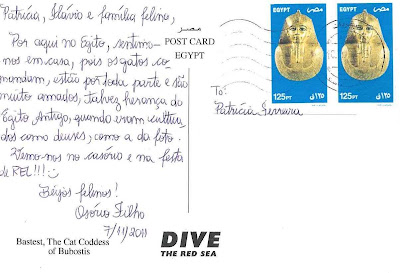 Patrícia, Flávio e família felina,
Por aqui no Egito, sentimo-
nos em casa, pois os gatos co-
mandam, estão por toda parte e são
muito amados, talvez herança do
Egito Antigo, quando eram cultua-
dos como deuses, como a da foto.
Vemo-nos no casório e na festa
de REL!!!
Beijos felinos!
Osório Filho
7/11/2011
Bastest, The Cat Goddess
of Bubostis
مصر
POST CARD
EGYPT
To:
Patrícia Ferreira
EGYPT مصر
125PT ١٢٥ق
EGYPT مصر
125PT ١٢٥ق
DIVE
THE RED SEA